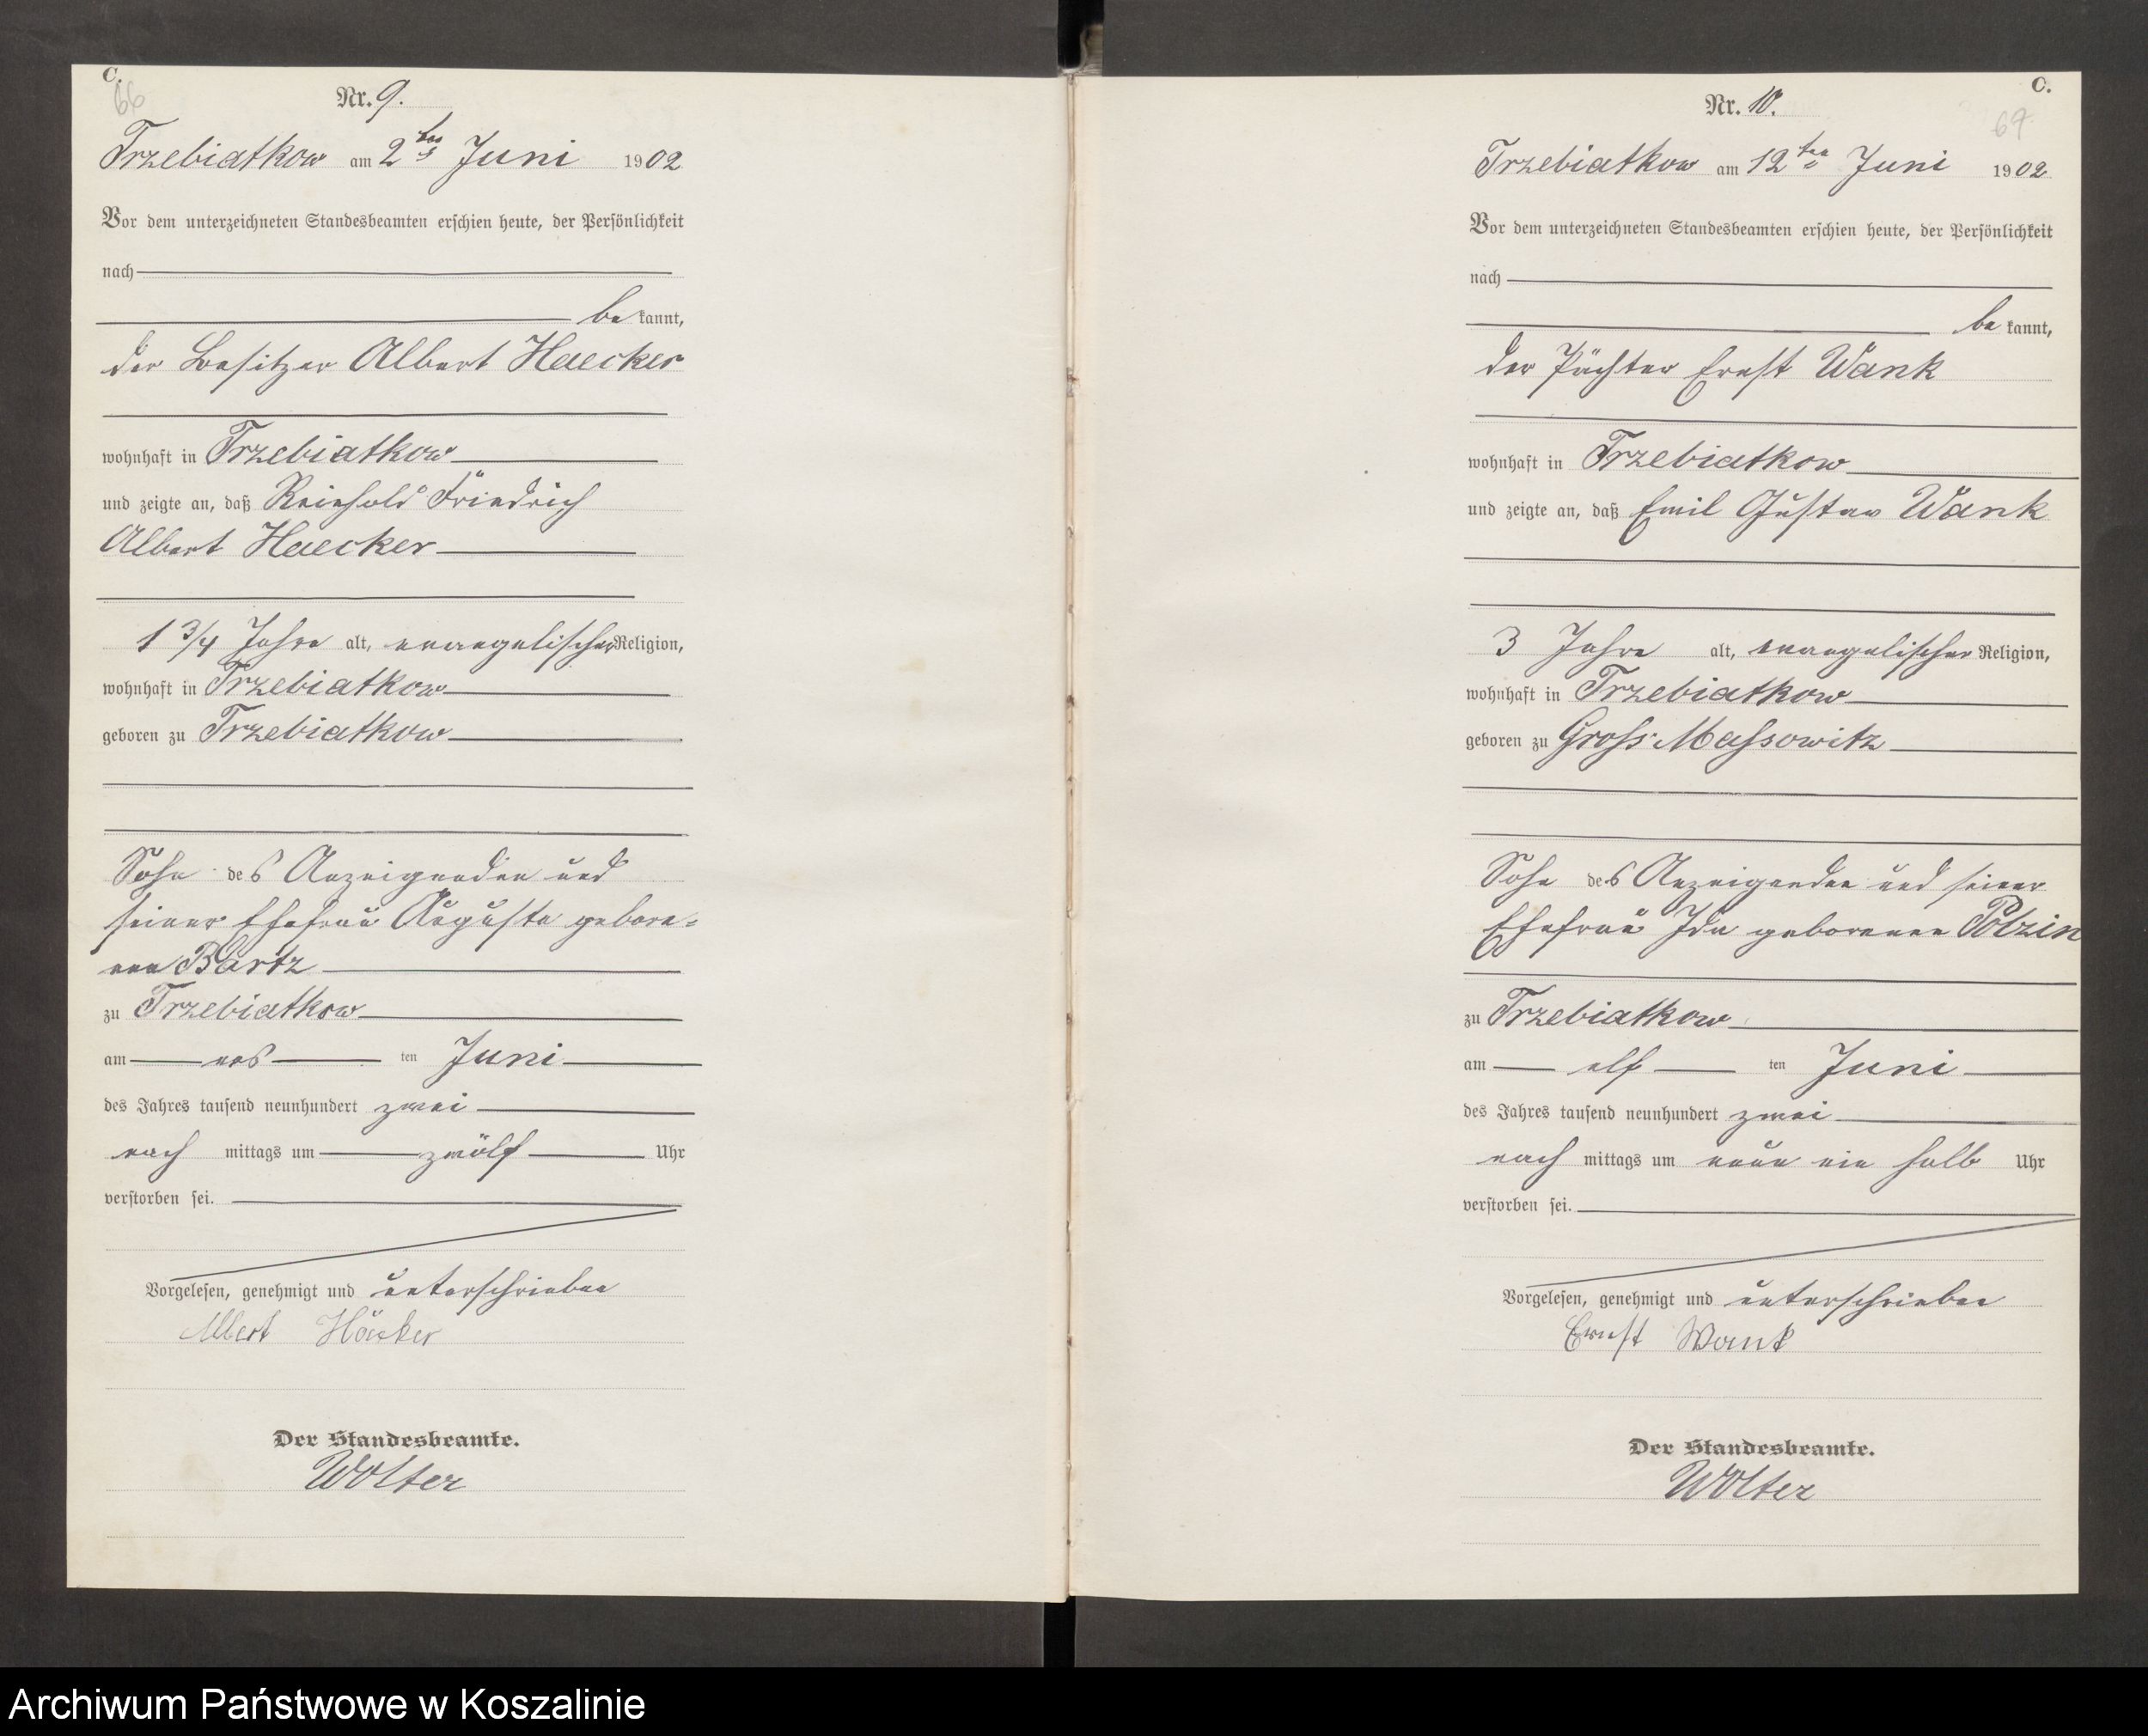 C.
66
Nr. 9.
Trzebiatkow am 2ten Juni 1902
Vor dem unterzeichneten Standesbeamten erschien heute, der Persönlichkeit
nach
be kannt,
der Besitzer Albert Haecker
wohnhaft in Trzebiatkow
und zeigte an, daß Reinhold Friedrich
Albert Haecker
1 3/4 Jahre alt, evangelischer Religion,
wohnhaft in Trzebiatkow
geboren zu Trzebiatkow
Sohn des Anzeigenden und
seiner Ehefrau Auguste gebore=
nen Bartz
zu Trzebiatkow
am ten Juni
des Jahres tausend neunhundert zwei
nach mittags um zwölf Uhr
verstorben sei.
Vorgelesen, genehmigt und unterschrieben
Albert Häcker
Der Standesbeamte.
Wolter
C.
67
Nr. 10.
Trzebiatkow am 12ten Juni 1902
Vor dem unterzeichneten Standesbeamten erschien heute, der Persönlichkeit
nach
be kannt,
der Pächter Ernst Wank
wohnhaft in Trzebiatkow
und zeigte an, daß Emil Gustav Wank
3 Jahre alt, evangelischer Religion,
wohnhaft in Trzebiatkow
geboren zu Gross Massowitz
Sohn des Anzeigenden und seiner
Ehefrau Ida geborenen Polzin
zu Trzebiatkow
am elf ten Juni
des Jahres tausend neunhundert zwei
nach mittags um neun ein halb Uhr
verstorben sei.
Vorgelesen, genehmigt und unterschrieben
Ernst Wank
Der Standesbeamte.
Wolter
Archiwum Państwowe w Koszalinie